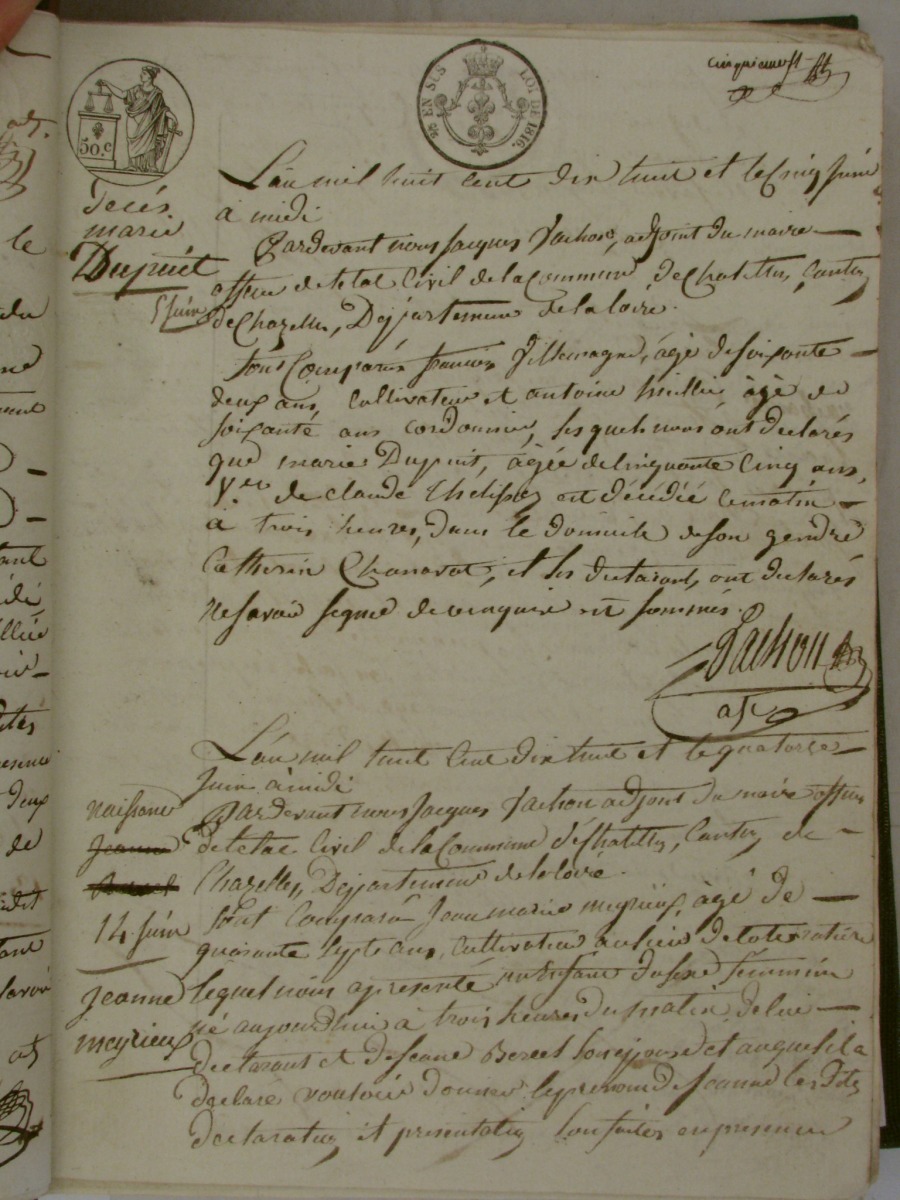 cinquieme ft
50.c
EN SUS LOI DE 1816.
L'an mil huit cent dix huit et le cinq juin
à midi
Pardevant nous jacques Vachon, adjoint du maire
officier de letat Civil de la Commune de Chatillon, Canton
de Chazelles, Département de la loire.
Sont Comparés francois Villemagne, âgé de soixante
deux ans, Cultivateur et antoine âgé de
soixante ans cordonnier, lesquels nous ont declarés
que marie Dupuit, âgée de cinquante cinq ans,
V.ve de claude est décédée ce matin
à trois heures, dans le domicile de son gendre
Catherin Chanavat, et les declarant, ont declarés
ne savoir signé de ce enquis et sommés.
Vachon
adj
decés
marie
Dupuit
5 juin
L'an mil huit cent dix huit et le quatorze
juin à midi
Pardevant nous jacques Vachon adjoint du maire officier
de letat Civil de la Commune de Chatillon, Canton de
Chazelles, Département de la loire.
Sont Comparu Jean marie meyrieux, âgé de
quarante sept ans, Cultivateur au lieu de
lequel nous a présenté un Enfant du sexe féminin
né aujourdhui à trois heures du matin, de lui
declarant et de jeane son epouse et auquel il a
declaré vouloir donner le prenom de Jeanne les dites
declaration et presentation sont faites en presence
naissance
Jeanne
14 juin
jeanne
meyrieux